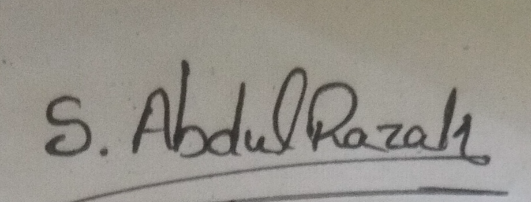 S. Abdul Razak